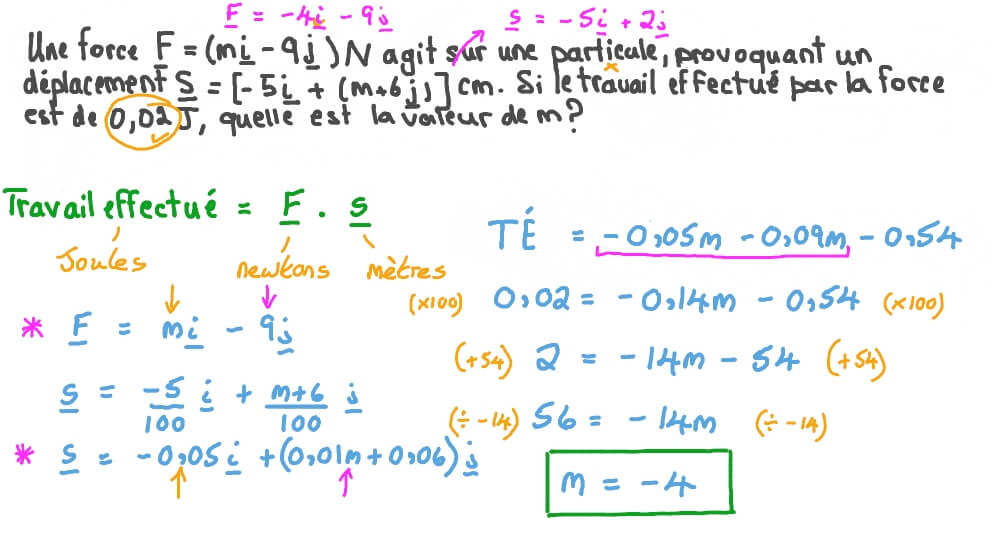 F = -4i - 9j s = -5i + 2j
Une force F = (mi - 9j) N agit sur une particule, provoquant un
déplacement S = [-5i + (m+6j)] cm. Si le travail effectué par la force
est de 0,02 J, quelle est la valeur de m?
Travail effectué = F . s
Joules newtons mètres
* F = mi - 9j
s = -5/100 i + m+6/100 j
* s = -0,05i + (0,01m + 0,06) j
TÉ = -0,05m - 0,09m - 0,54
(x100) 0,02 = -0,14m - 0,54 (x100)
(+54) 2 = -14m - 54 (+54)
(÷ -14) 56 = -14m (÷ -14)
m = -4